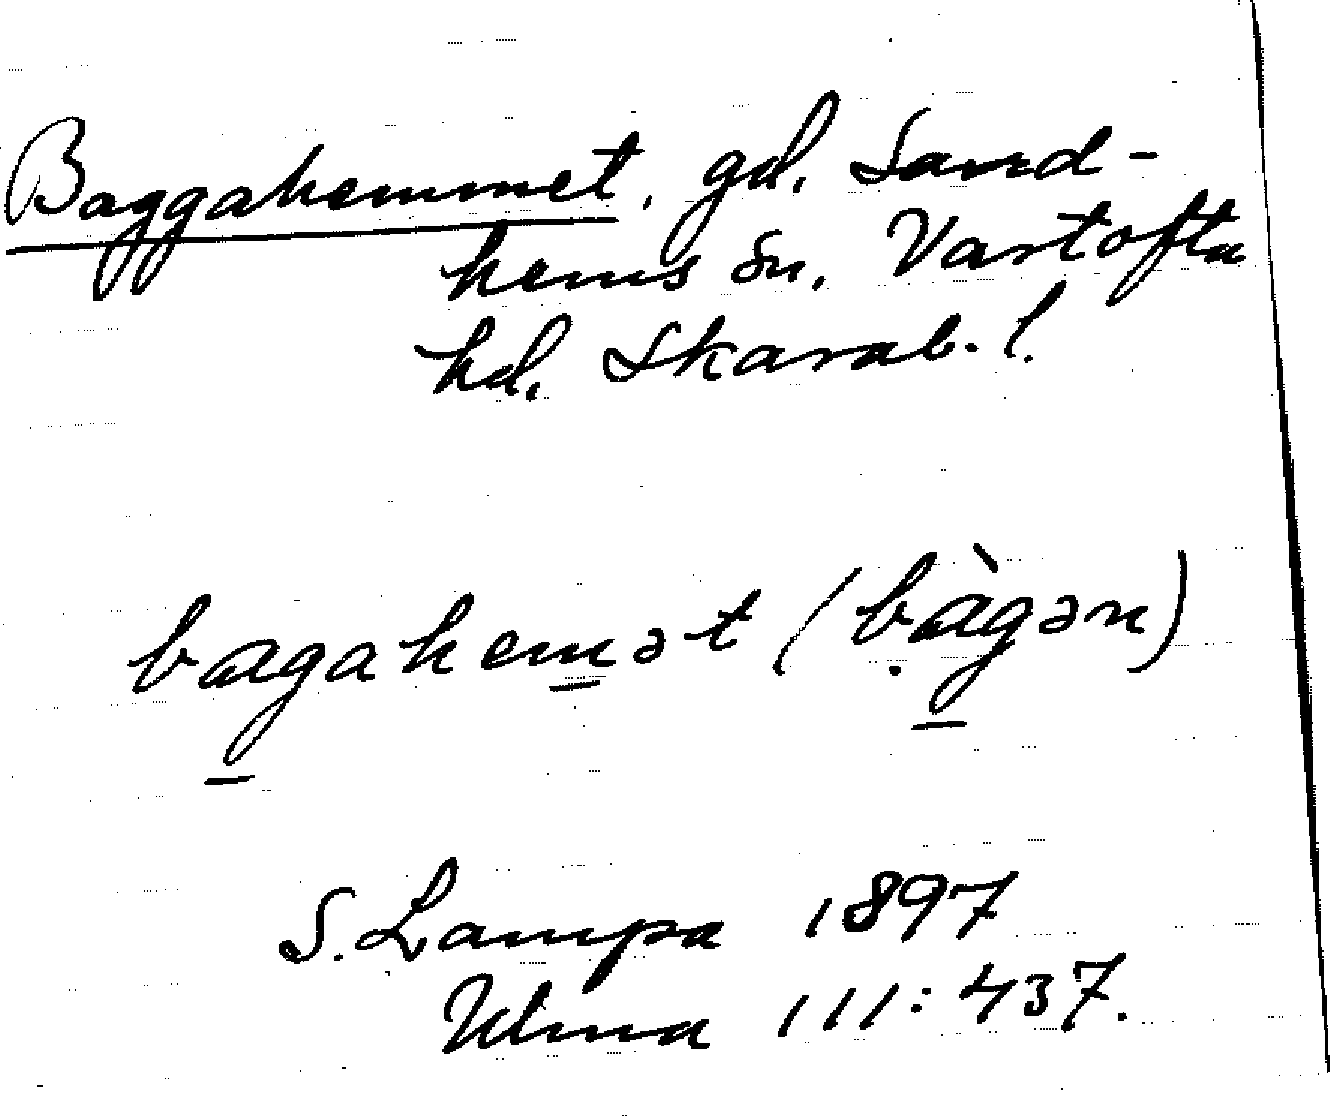 Baggahemmet, gd. Sand-
hems sn. Vartofta
hd. Skarab. l.
bagahemət (bàgən)
S. Lampa 1897
Ulma 111:437.